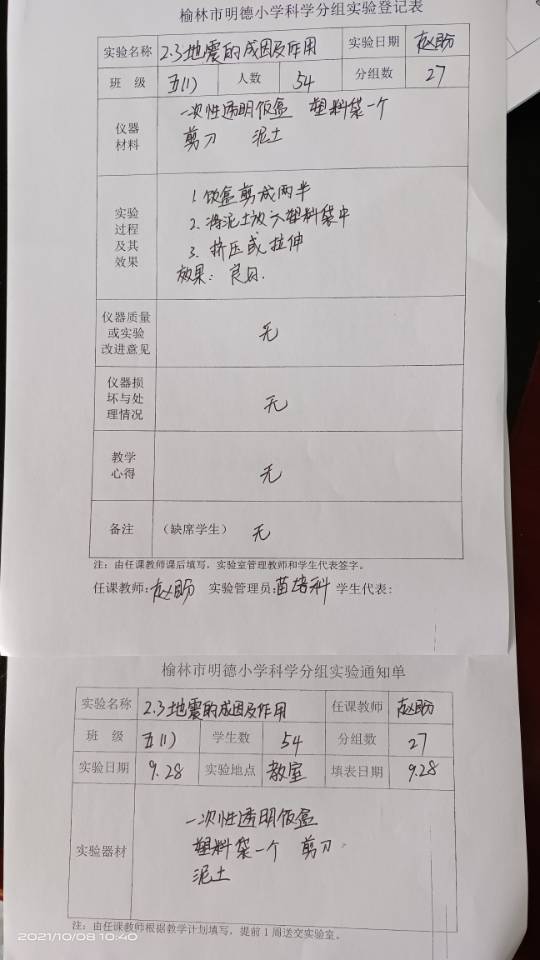 榆林市明德小学科学分组实验登记表
实验名称 2.3地震的成因及作用 实验日期 赵盼
班 级 五(1) 人数 54 分组数 27
仪器材料 一次性透明饭盒 塑料袋一个
剪刀 泥土
实验过程及其效果 1.饭盒剪成两半
2.将泥土放入塑料袋中
3.挤压或拉伸
效果:良日.
仪器质量或实验改进意见 无
仪器损坏与处理情况 无
教学心得 无
备注 (缺席学生) 无
注:由任课教师课后填写,实验室管理教师和学生代表签字。
任课教师:赵盼 实验管理员:苗培科 学生代表:
榆林市明德小学科学分组实验通知单
实验名称 2.3地震的成因及作用 任课教师 赵盼
班 级 五(1) 学生数 54 分组数 27
实验日期 9.28 实验地点 教室 填表日期 9.28
实验器材 一次性透明饭盒
塑料袋一个 剪刀
泥土
注:由任课教师根据教学计划填写,提前1周送交实验室。
2021/10/08 10:40